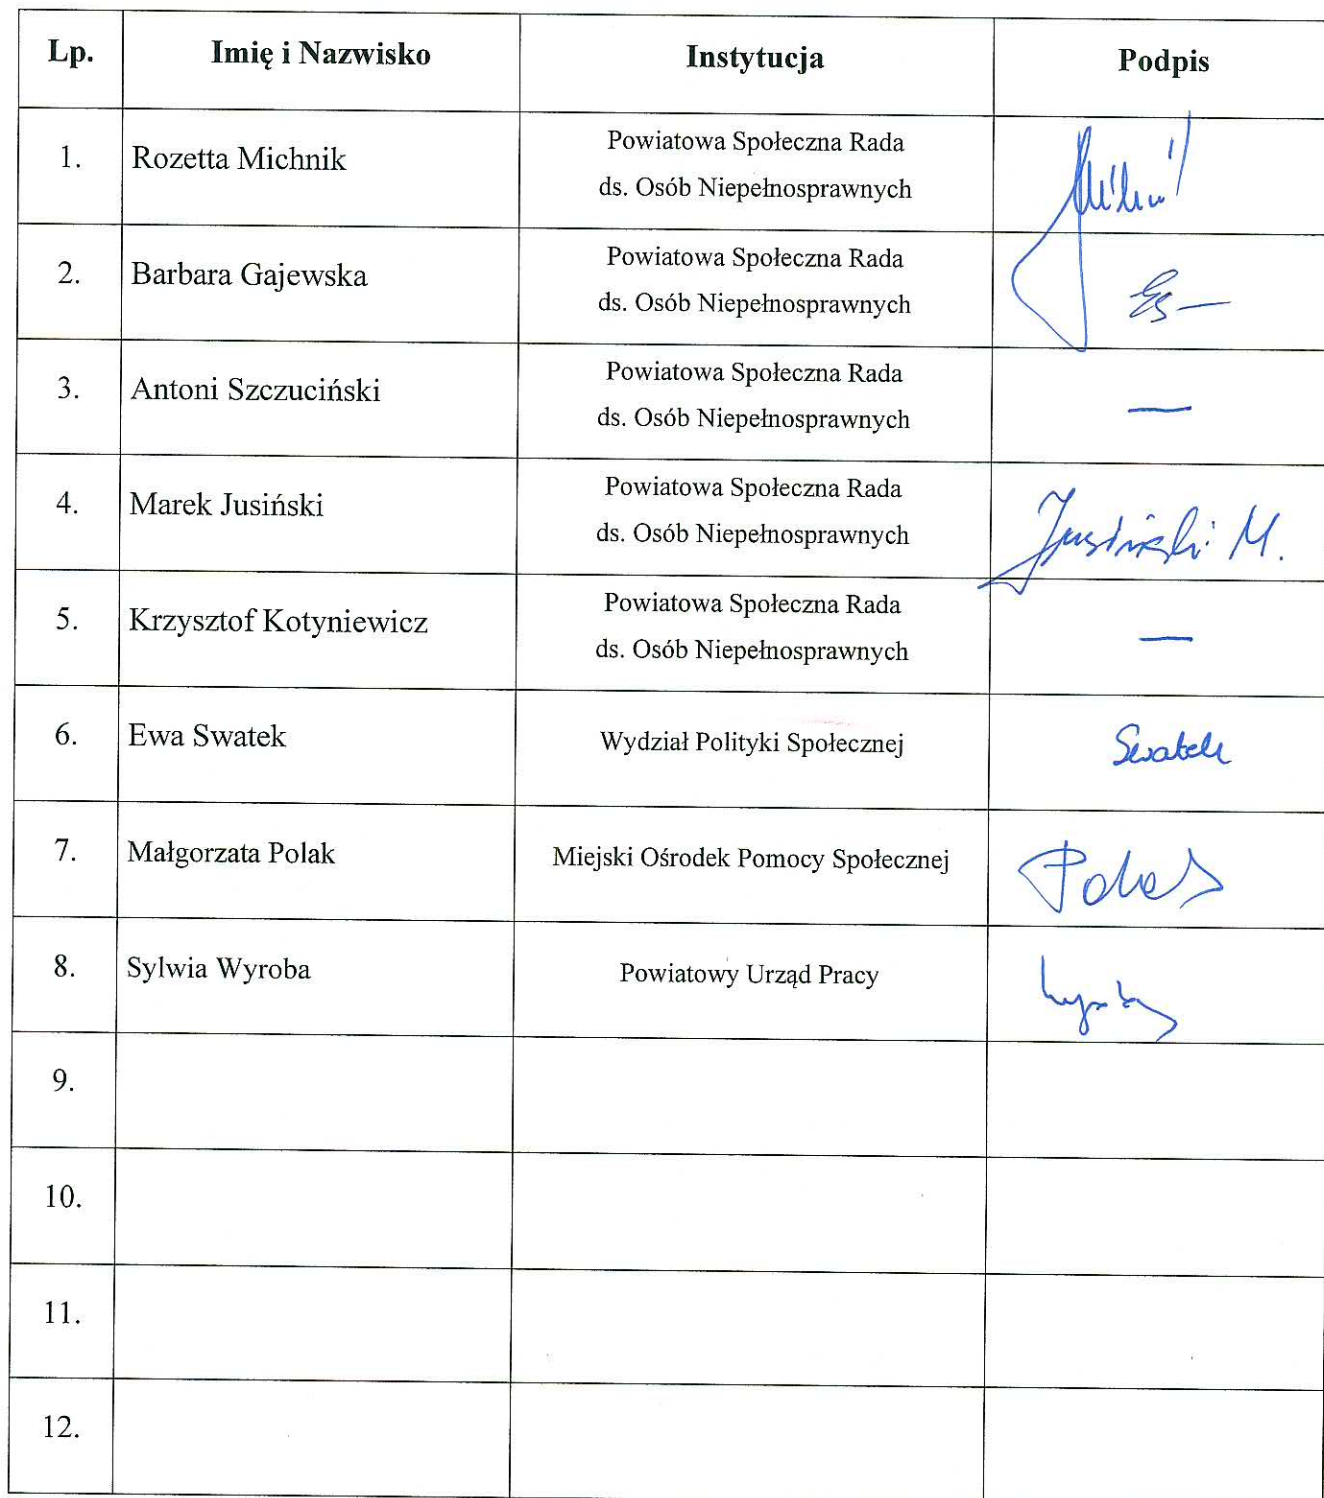 Lp. Imię i Nazwisko Instytucja Podpis
1. Rozetta Michnik Powiatowa Społeczna Rada
ds. Osób Niepełnosprawnych
2. Barbara Gajewska Powiatowa Społeczna Rada
ds. Osób Niepełnosprawnych
3. Antoni Szczuciński Powiatowa Społeczna Rada
ds. Osób Niepełnosprawnych
—
4. Marek Jusiński Powiatowa Społeczna Rada
ds. Osób Niepełnosprawnych
Jusiński M.
5. Krzysztof Kotyniewicz Powiatowa Społeczna Rada
ds. Osób Niepełnosprawnych
—
6. Ewa Swatek Wydział Polityki Społecznej Swatek
7. Małgorzata Polak Miejski Ośrodek Pomocy Społecznej Polak
8. Sylwia Wyroba Powiatowy Urząd Pracy
9.
10.
11.
12.